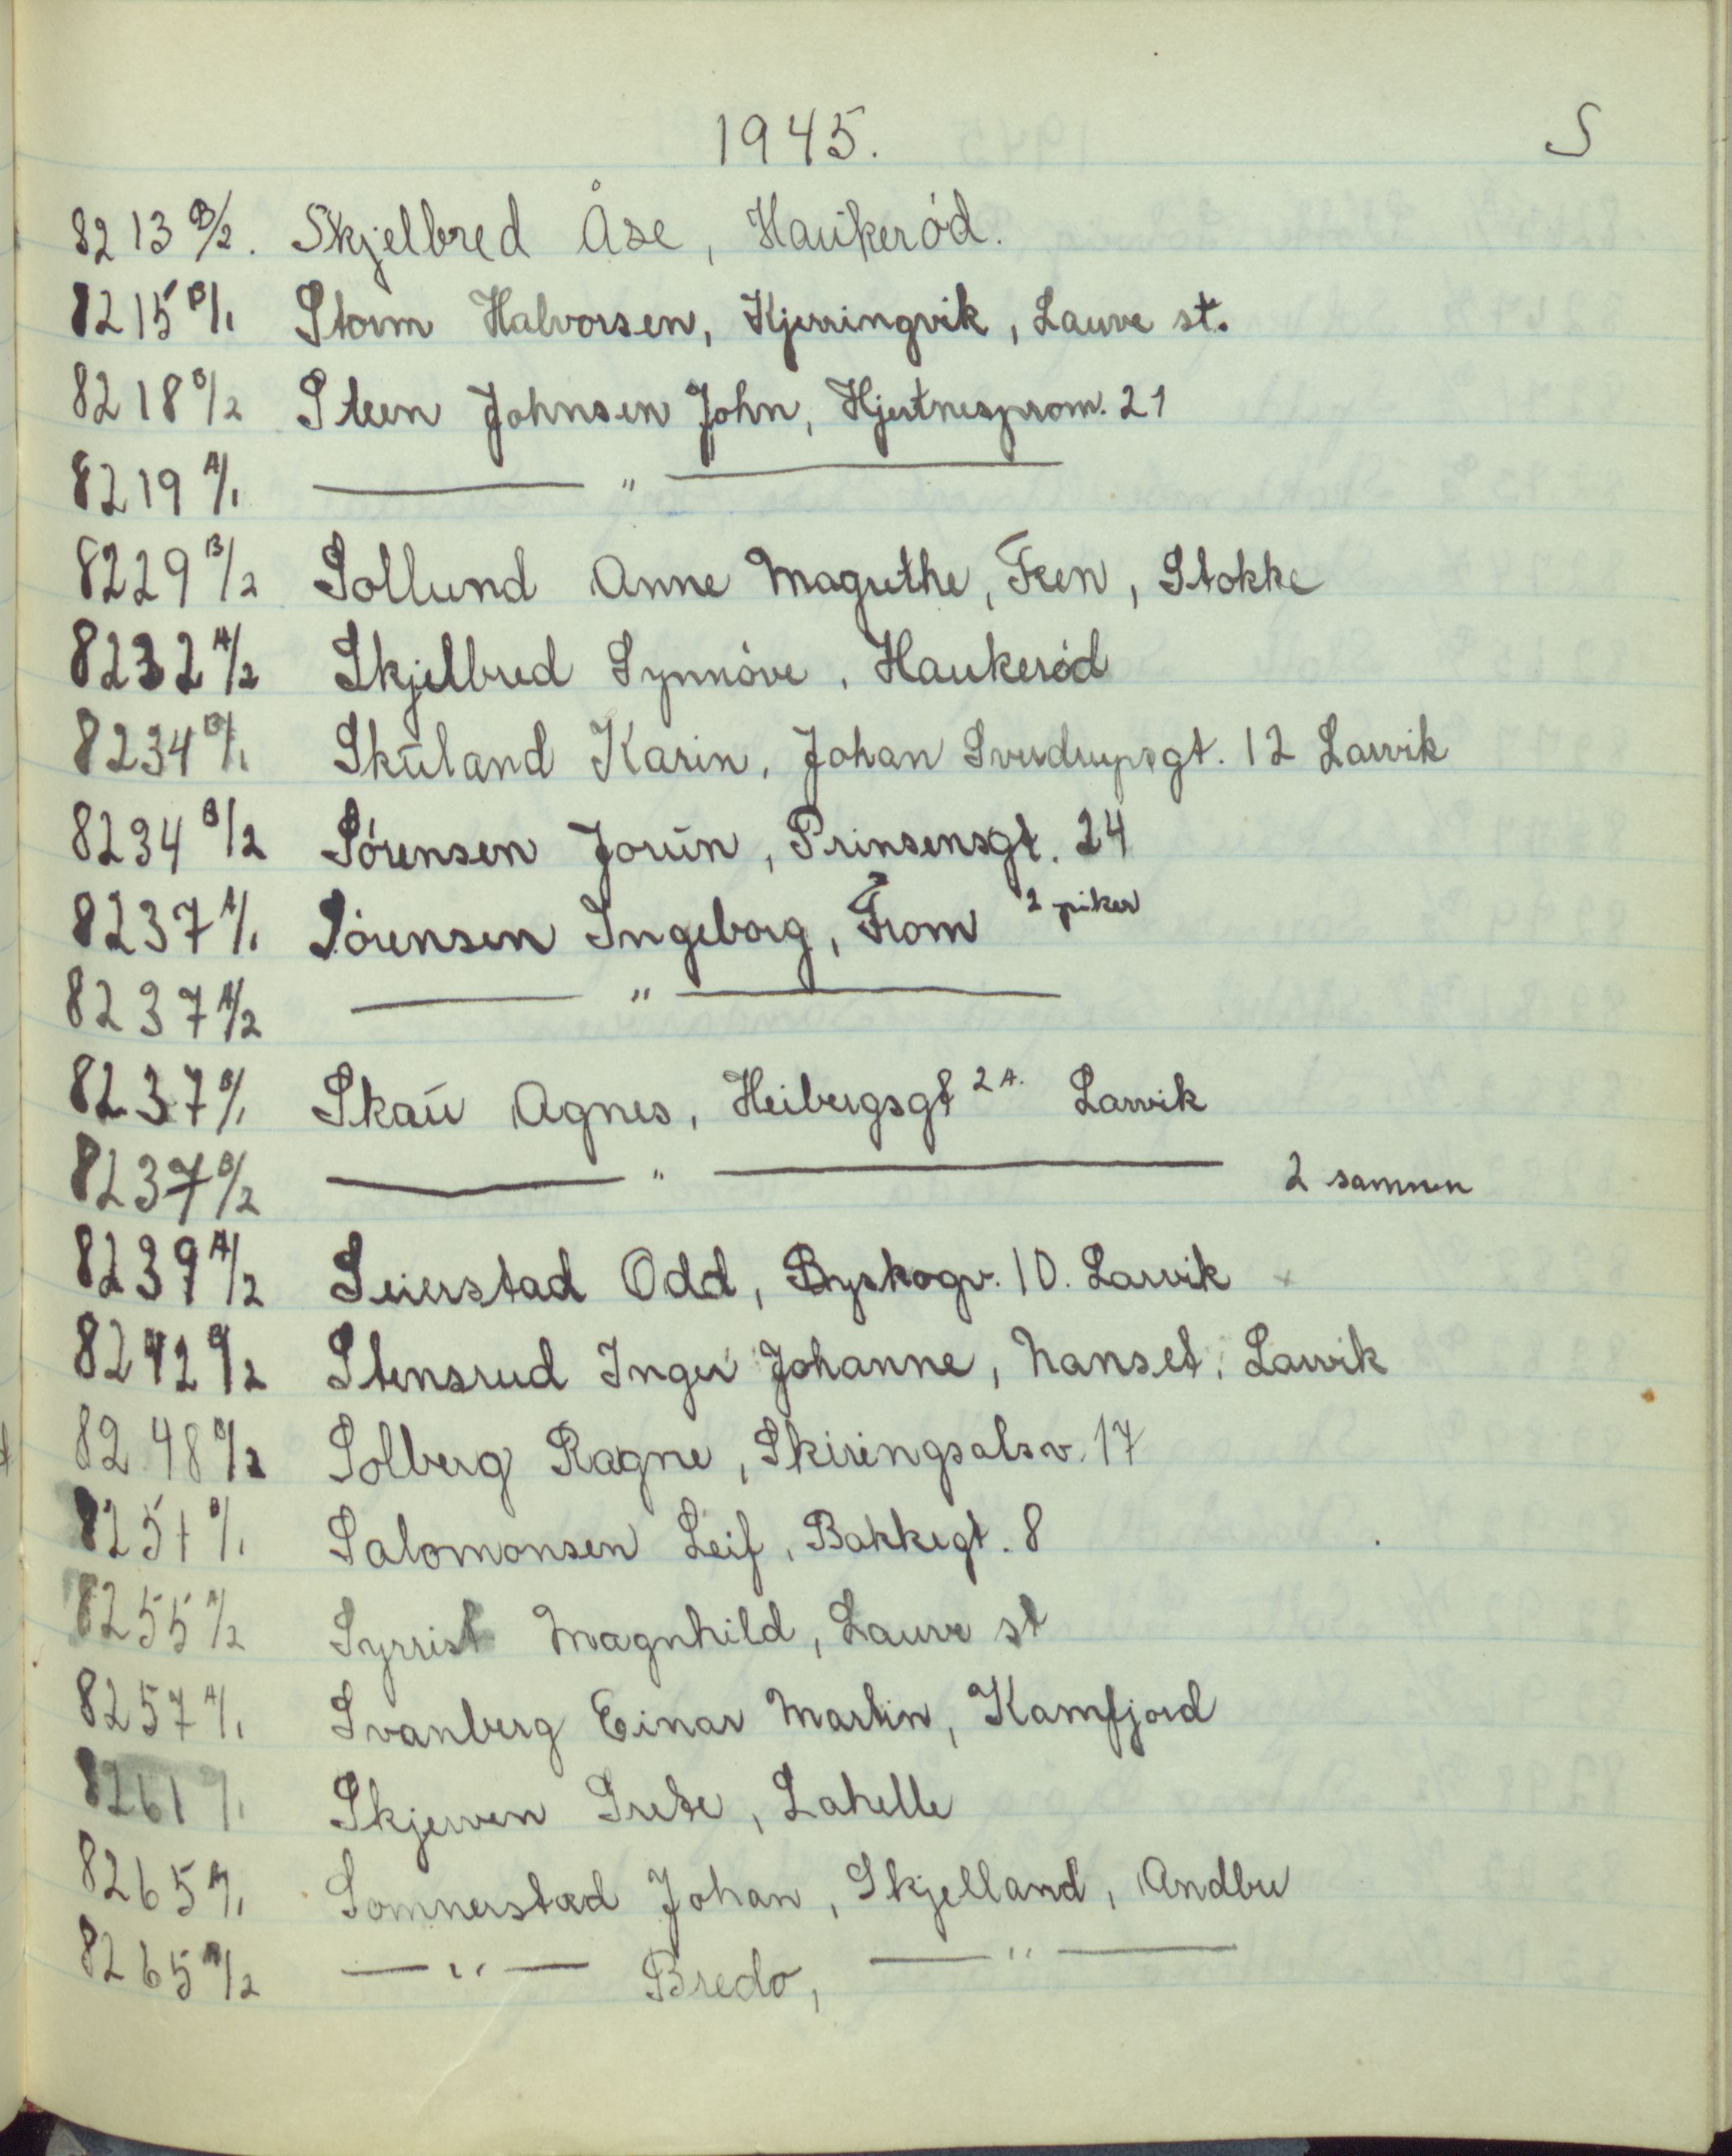 1945. S
8213 B/2. Skjelbred Åse, Haukeród.
8215 B/1 Storm Halvorsen, Kjerringvik, Lauve st.
8218 B/2 Steen Johnsen John, Hjertnesprom. 21
8219 A/1 — " —
8229 B/2 Sollund Anne Magrethe, Fen, Stokke
8232 A/2 Skjelbred Synnóve, Haukeród
8234 B/1 Skuland Karin, Johan Sverdrupsgt. 12 Larvik
8234 B/2 Sórensen Jorun, Prinsensgt. 24
8237 A/1 Sórensen Ingeborg, From 2 piker
8237 A/2 — " —
8237 B/1 Skau Agnes, Heibergsgt 2 A. Larvik
8237 B/2 — " — 2 sammen
8239 A/2 Seierstad Odd, Byskogv. 10. Larvik
8242 /2 Stensrud Inger Johanne, Nanset, Larvik
8248 /2 Solberg Ragne, Skiringsalsv. 17
8251 B/1 Salomonsen Leif, Bakkegt. 8
8255 A/2 Syrrist Magnhild, Lauve st
8257 A/1 Svanberg Einar Martin, Kamfjord
8261 /1 Skjerven Grete, Lahelle
8265 A/1 Somnerstad Johan, Skjelland, Andbu
8265 A/2 — " — Bredo, — " —